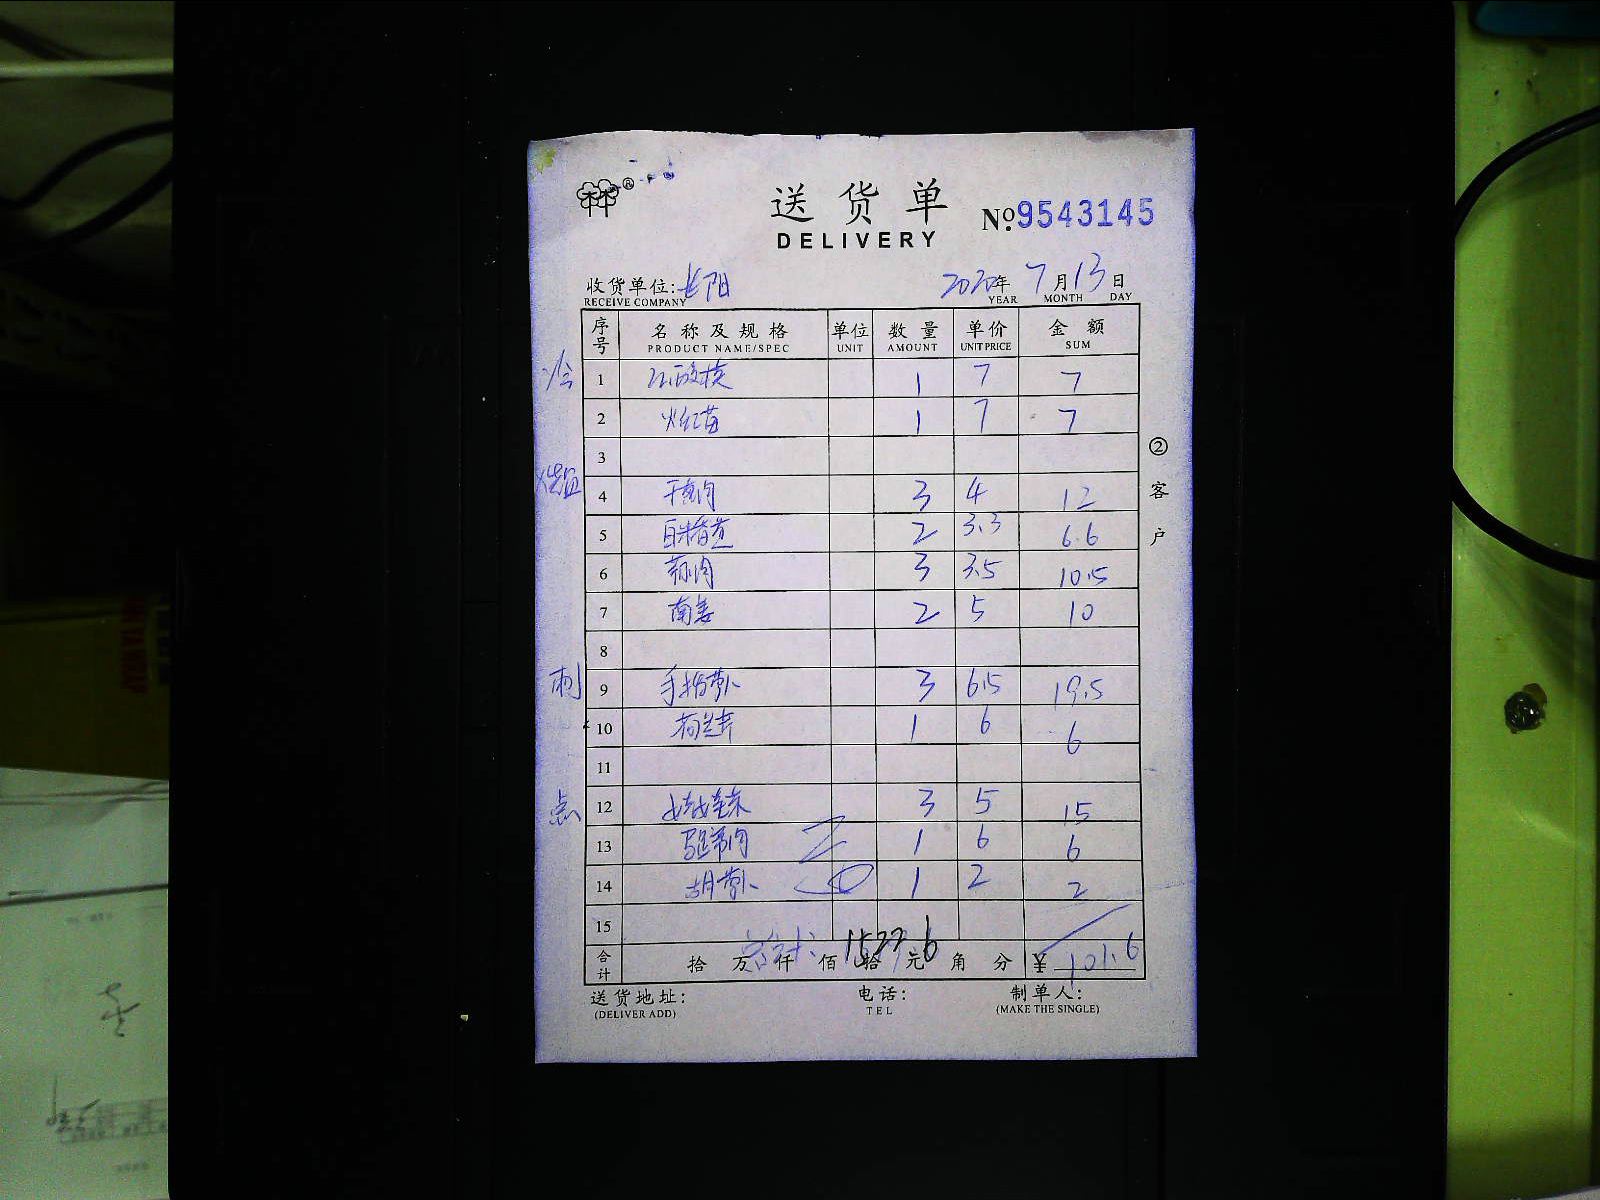 送货单
DELIVERY
№ 9543145
收货单位: 长阳 2020年 7月 13日
RECEIVE COMPANY YEAR MONTH DAY
序号 名称及规格 单位 数量 单价 金额
PRODUCT NAME/SPEC UNIT AMOUNT UNIT PRICE SUM
冷 1 1 7 7
2 火红苗 1 7 7
3
4 肉 3 4 12
5 2 3.3 6.6
6 肉 3 3.5 10.5
7 南姜 2 5 10
8
刺 9 手指萝卜 3 6.5 19.5
10 荷兰芹 1 6 6
11
点 12 3 5 15
13 1 6 6
14 胡萝卜 1 2 2
15
合计 拾 万 仟 佰 拾 元 角 分 ¥ 101.6
1527.6
② 客户
送货地址: 电话: 制单人:
(DELIVER ADD) TEL (MAKE THE SINGLE)